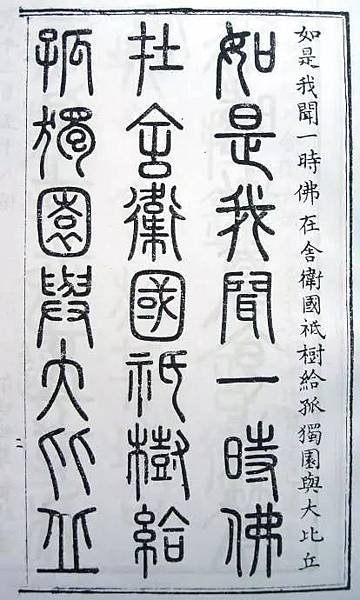 如是我聞一時佛在舍衛國祇樹給孤獨園與大比丘
如是我聞一時佛
在舍衛國祇樹給
孤獨園與大比丘